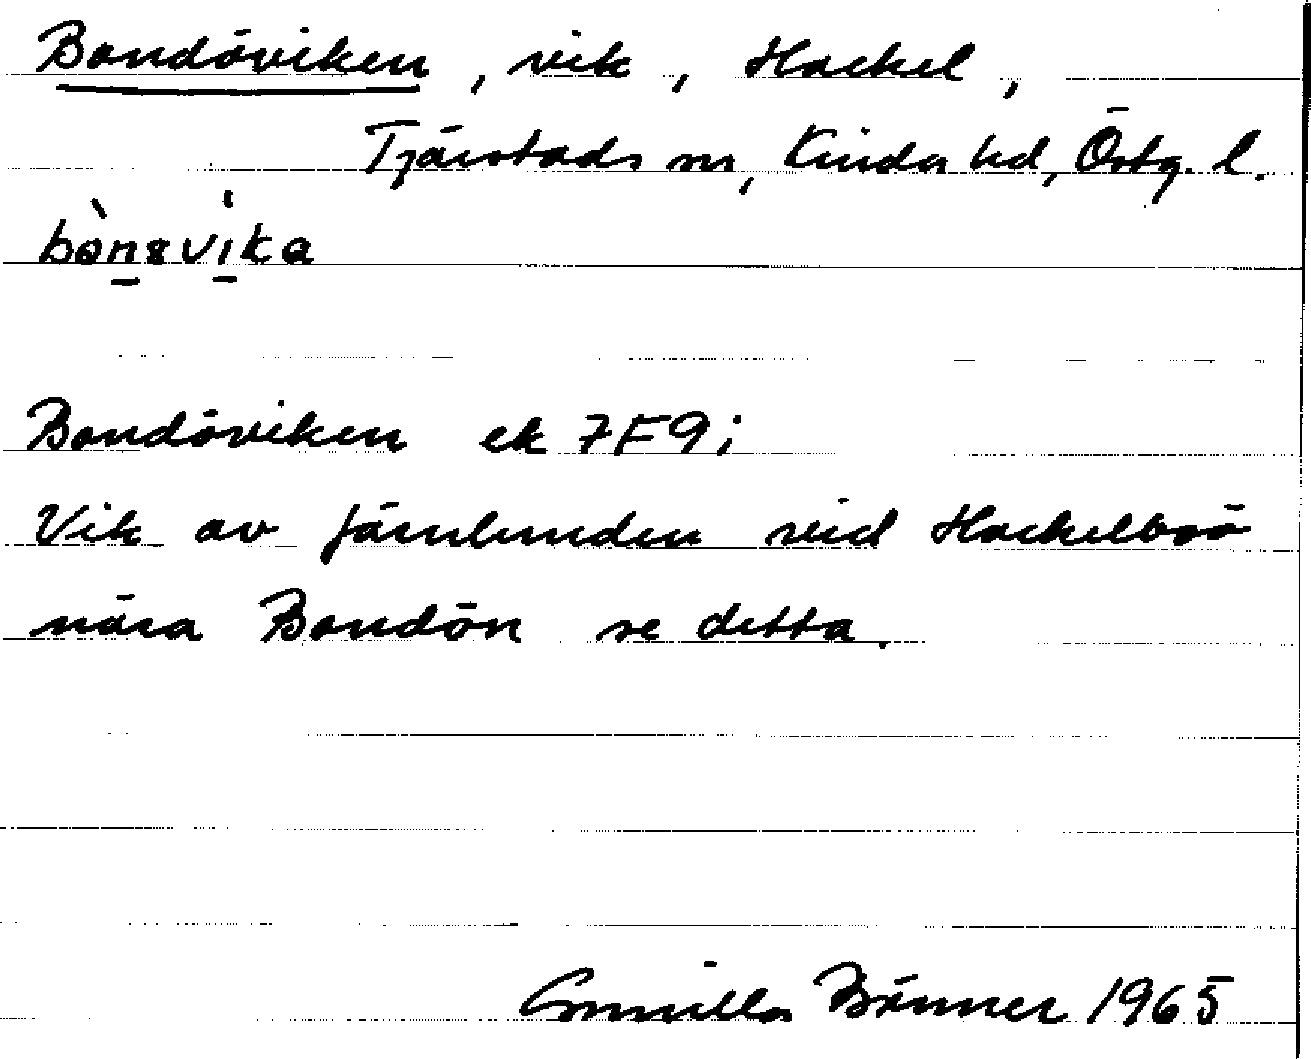 Bondöviken, vik, Hackel,
Tjärstads sn, Kinda hd, Östg. l.
bònsvika
Bondöviken ek 7F9i
Vik av Järnlunden vid Hackelboö
nära Bondön se detta.
Gunilla Bänner 1965